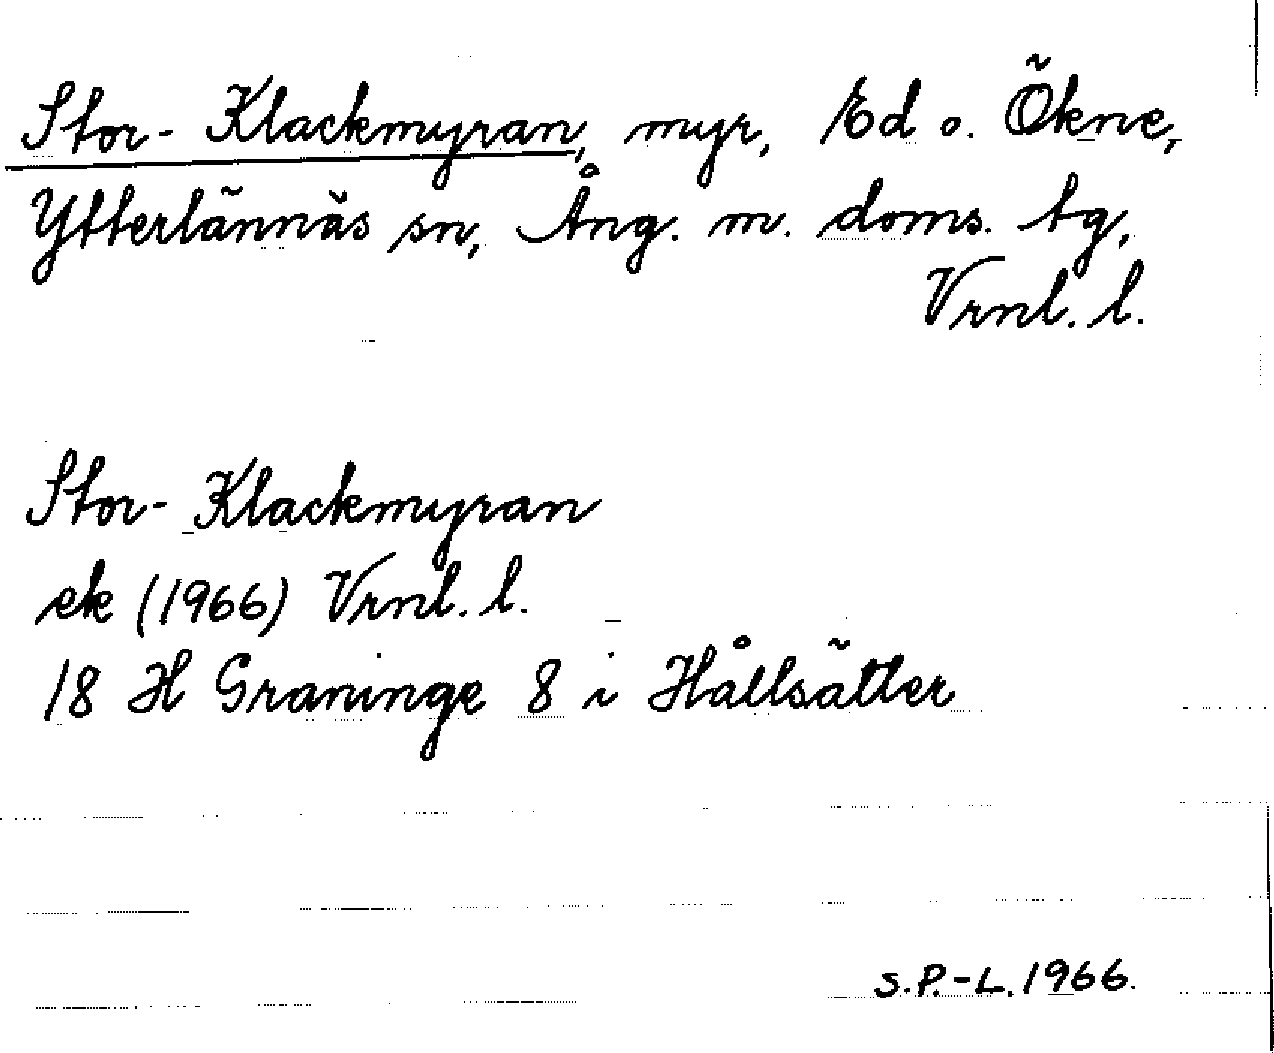 Stor- Klackmyran, myr, Ed o. Ökne,
Ytterlännäs sn, Ång. m. doms. tg,
Vrnl. l.
Stor- Klackmyran
ek (1966) Vrnl. l.
18 H Graninge 8 i Hållsätter
S.P.-L. 1966.